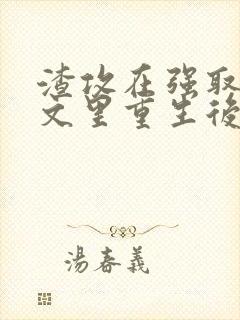 渣攻在强取
文里重生後
湯春義